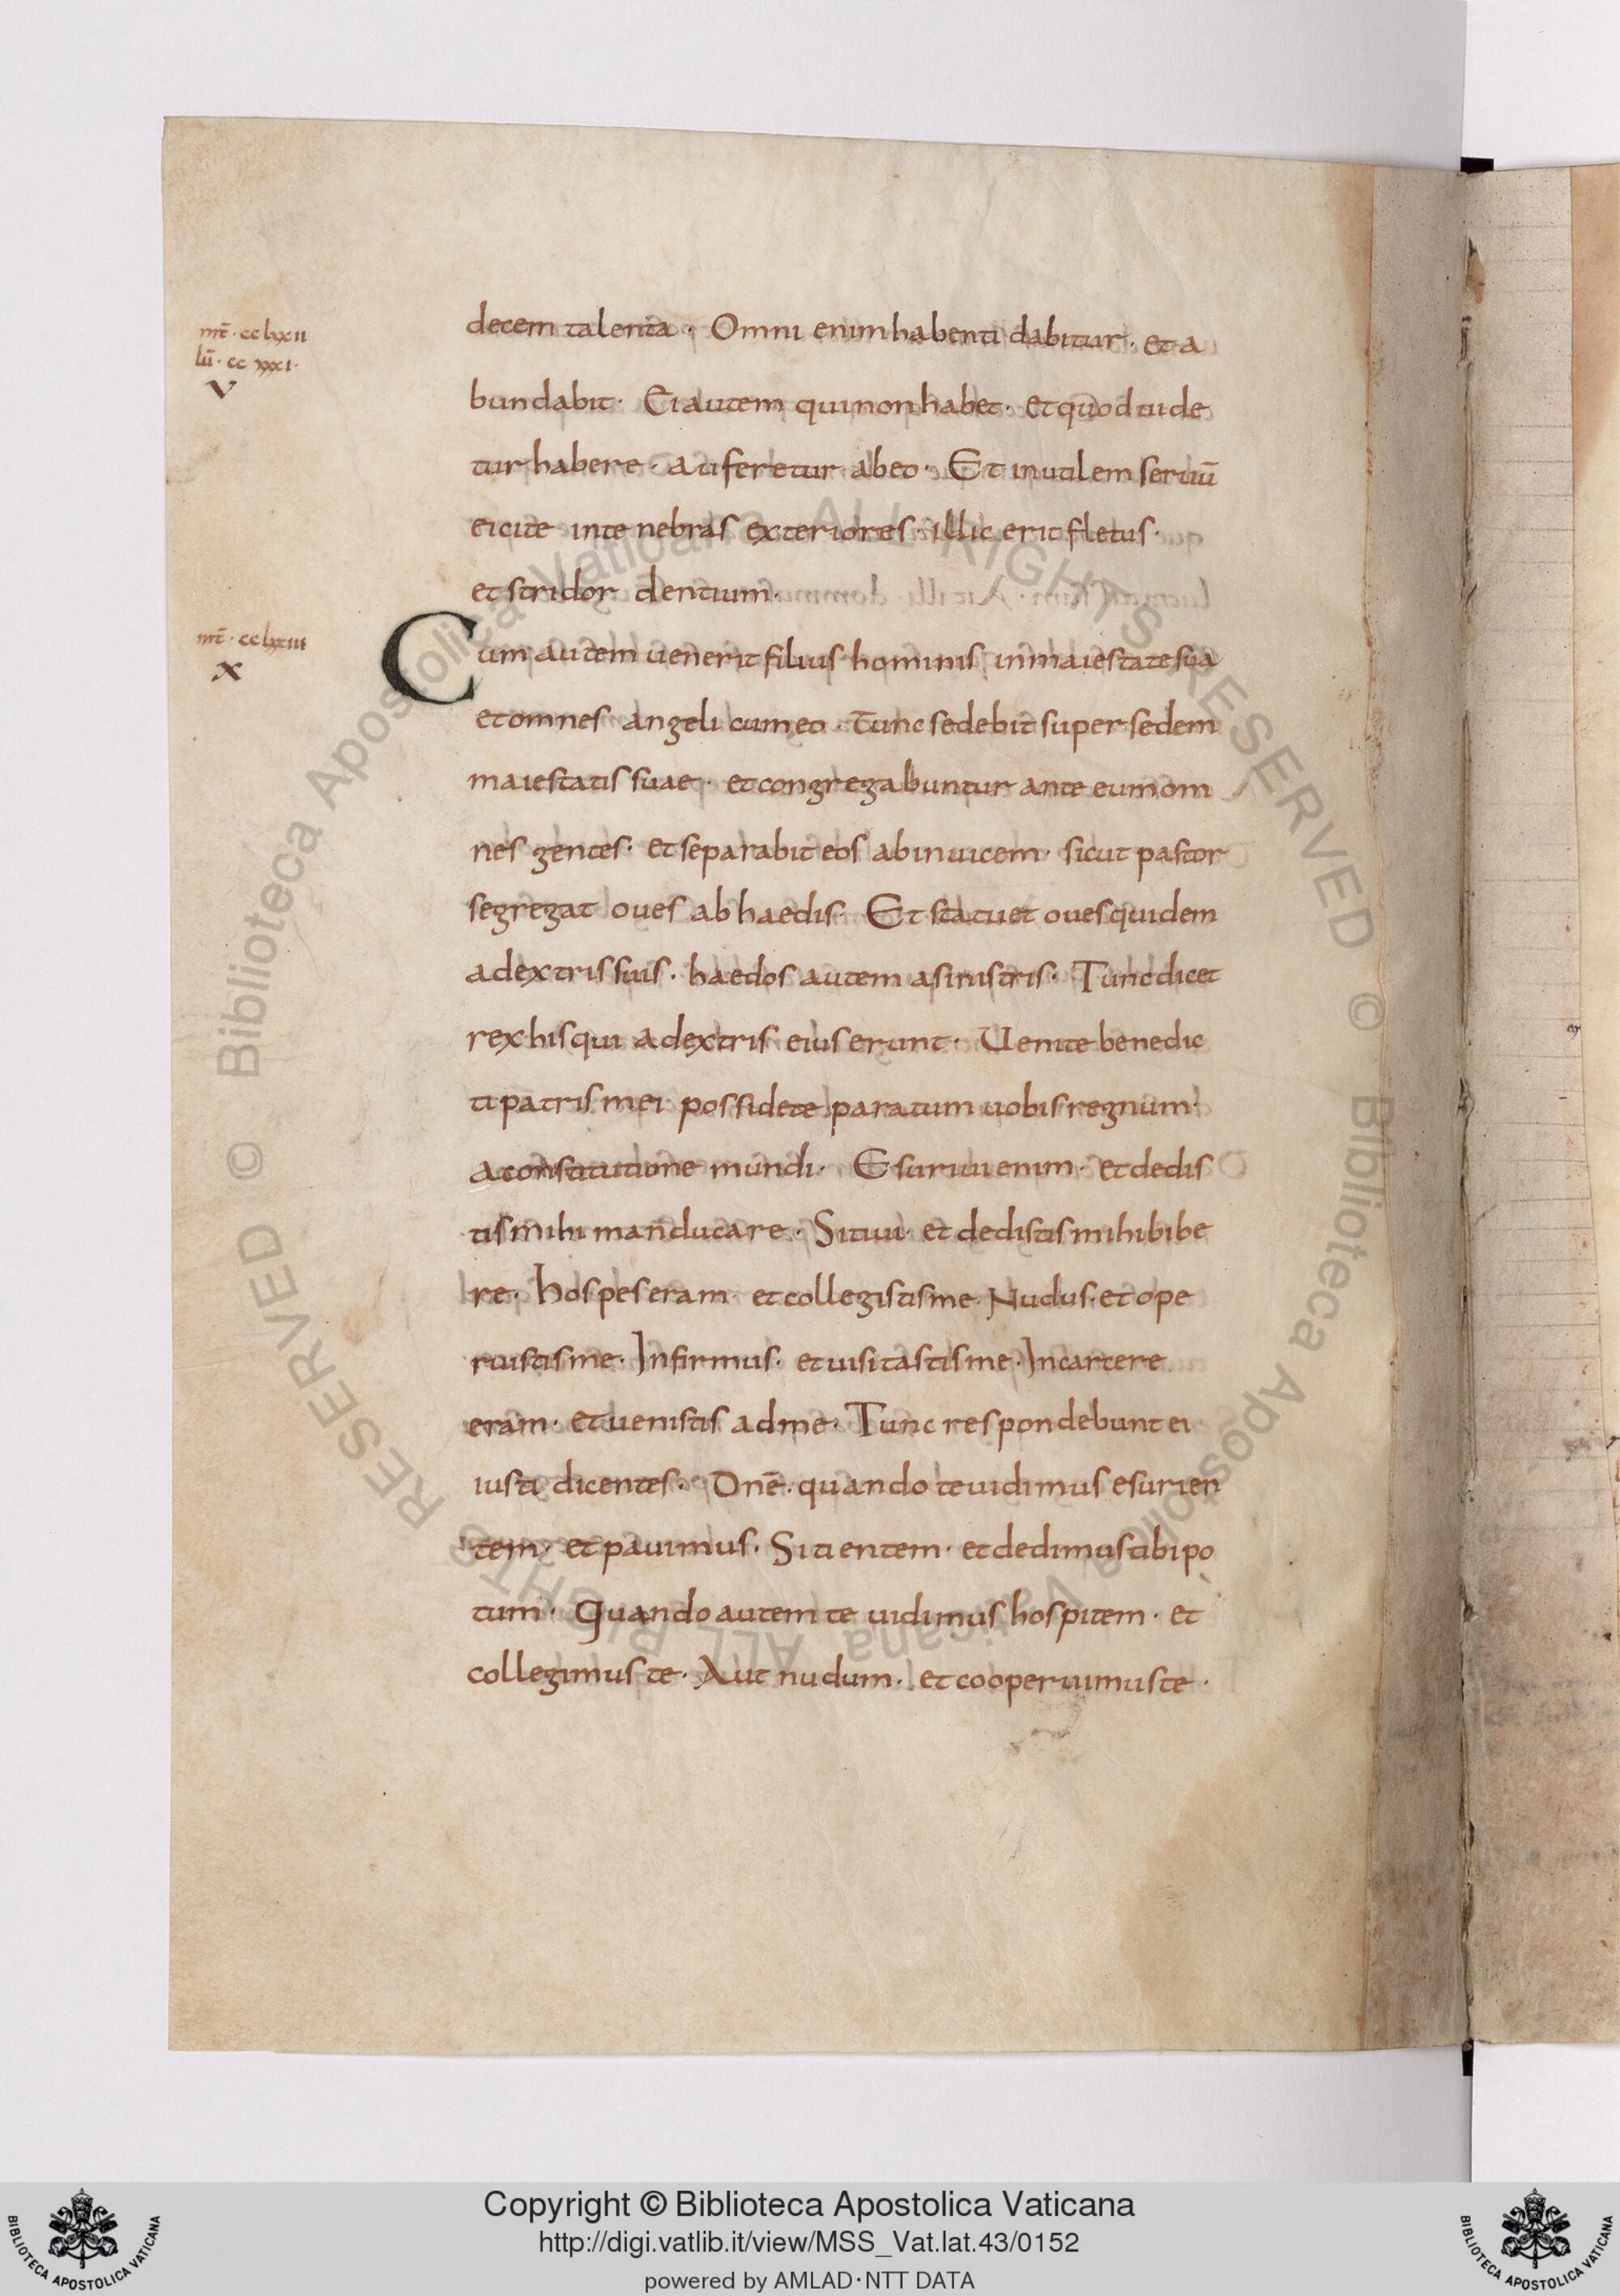 mr̄t · cclxxii
lū · ccxxxi ·
V
decem talenta · Omni enim habenti dabitur · et a
bundabit · Ei autem qui non habet · et quod uide
tur habere · auferetur ab eo · Et inutilem seruū
eicite in tenebras exteriores · illic erit fletus ·
et stridor dentium ·
x
Cum autem uenerit filius hominis in maiestate sua
et omnes angeli cum eo · Tunc sedebit super sedem
maiestatis suae · et congregabuntur ante eum om
nes gentes · et separabit eos ab inuicem · sicut pastor
segregat oues ab haedis · Et statuet oues quidem
a dextris suis · haedos autem a sinistris · Tunc dicet
rex his qui a dextris eius erunt · Uenite benedic
ti patris mei possidete paratum uobis regnum ·
a constitutione mundi · Esuriui enim · et dedis
tis mihi manducare · Sitiui · et dedistis mihi bibe
re · hospes eram · et collegistis me · Nudus · et ope
ruistis me · Infirmus · et uisitastis me · In carcere
eram · et uenistis ad me · Tunc respondebunt ei
iusti dicentes · Dnē · quando te uidimus esurien
tem · et pauimus · Sitientem · et dedimus tibi po
tum · Quando autem te uidimus hospitem · et
collegimus te · Aut nudum · et cooperuimus te ·
Copyright © Biblioteca Apostolica Vaticana
http://digi.vatlib.it/view/MSS_Vat.lat.43/0152
powered by AMLAD·NTT DATA
BIBLIOTECA APOSTOLICA VATICANA
BIBLIOTECA APOSTOLICA VATICANA
© Biblioteca Apostolica Vaticana ALL RIGHTS RESERVED
© Biblioteca Apostolica Vaticana ALL RIGHTS RESERVED